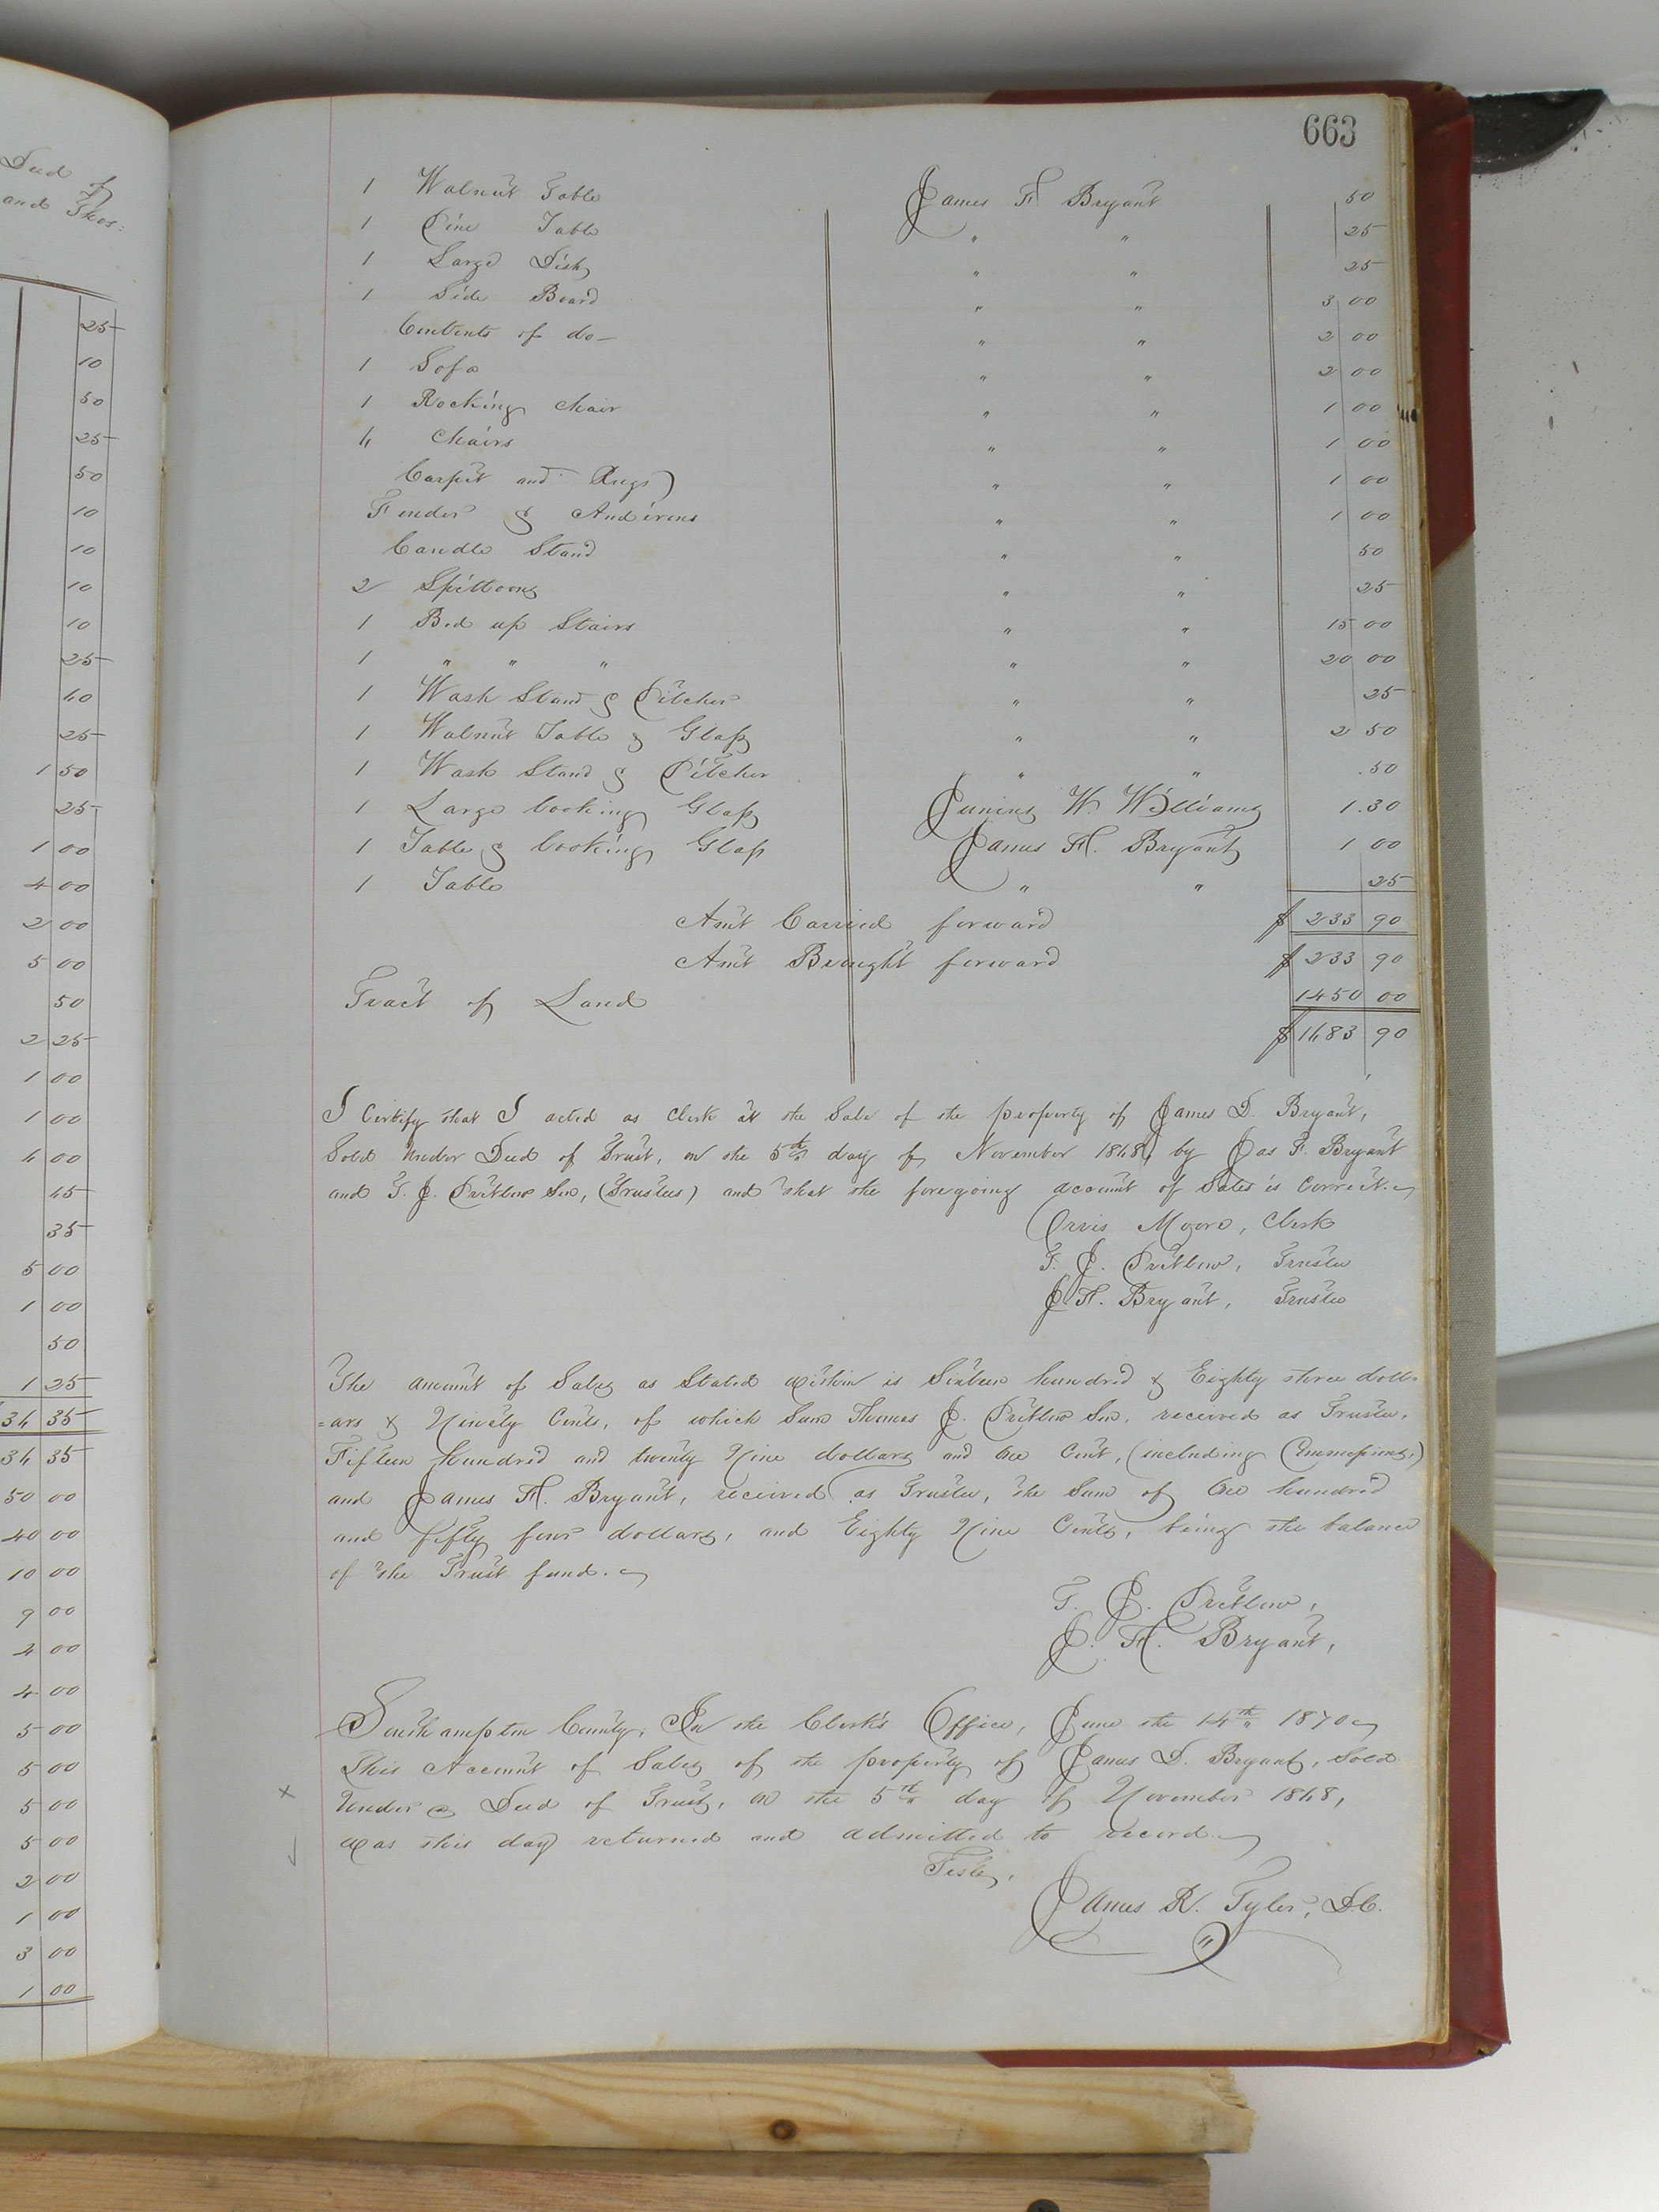 Deed of
and Thos:
25
10
50
25
50
10
10
10
10
25
40
25
1 50
25
1 00
4 00
2 00
5 00
50
2 25
1 00
1 00
4 00
45
35
5 00
1 00
50
1 25
34 35
34 35
50 00
40 00
10 00
9 00
4 00
4 00
5 00
5 00
5 00
5 00
2 00
1 00
3 00
1 00
663
1 Walnut Table James F. Bryant 50
1 Pine Table " " 25
1 Large Dish " " 25
1 Side Board " " 3 00
Contents of do— " " 2 00
1 Sofa " " 2 00
1 Rocking Chair " " 1 00
4 Chairs " " 1 00
Carpet and Rugs " " 1 00
Fender & Andirons " " 1 00
Candle Stand " " 50
2 Spittoons " " 25
1 Bed up Stairs " " 15 00
1 " " " " " 20 00
1 Wash Stand & Pitcher " " 25
1 Walnut Table & Glass " " 2 50
1 Wash Stand & Pitcher " " .50
1 Large looking Glass Junius W. Williams 1.30
1 Table & looking Glass James F. Bryant 1 00
1 Table " " 25
Am't Carried forward $ 233 90
Am't Brought forward $ 233 90
Tract of Land 1450 00
$ 1683 90
I Certify that I acted as Clerk at the Sale of the property of James D. Bryant,
Sold Under Deed of Trust, on the 5th day of November 1868, by Jas F. Bryant
and T. J. Pretlow Sen, (Trustees) and that the foregoing account of Sales is Correct.
Orris Moore, Clerk
T. J. Pretlow, Trustee
J. F. Bryant, Trustee
The amount of Sales as Stated within is Sixteen hundred & Eighty three doll=
=ars & Ninety Cents, of which Sum Thomas J. Pretlow Sen, received as Trustee,
Fifteen hundred and twenty Nine dollars and One Cent, (including Commissions,)
and James F. Bryant, received as Trustee, the Sum of One hundred
and fifty four dollars, and Eighty Nine Cents, being the balance
of the Trust fund.
T. J. Pretlow,
J. F. Bryant,
Southampton County, In the Clerk's Office, June the 14th 1870
This Account of Sales of the property of James D. Bryant, Sold
x Under a Deed of Trust, on the 5th day of November 1868,
was this day returned and admitted to record.
Teste,
James R. Tyler, D.C.